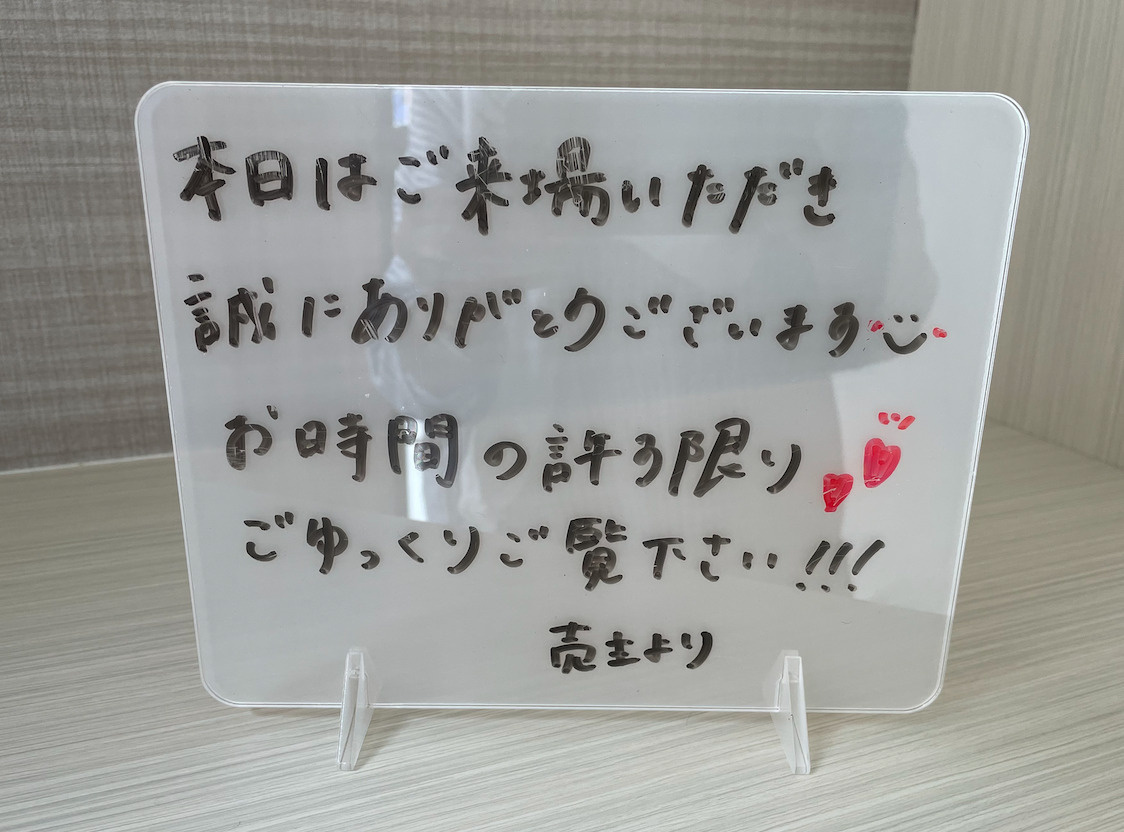 本日はご来場いただき
誠にありがとうございます
お時間の許す限り
ごゆっくりご覧下さい!!!
売主より